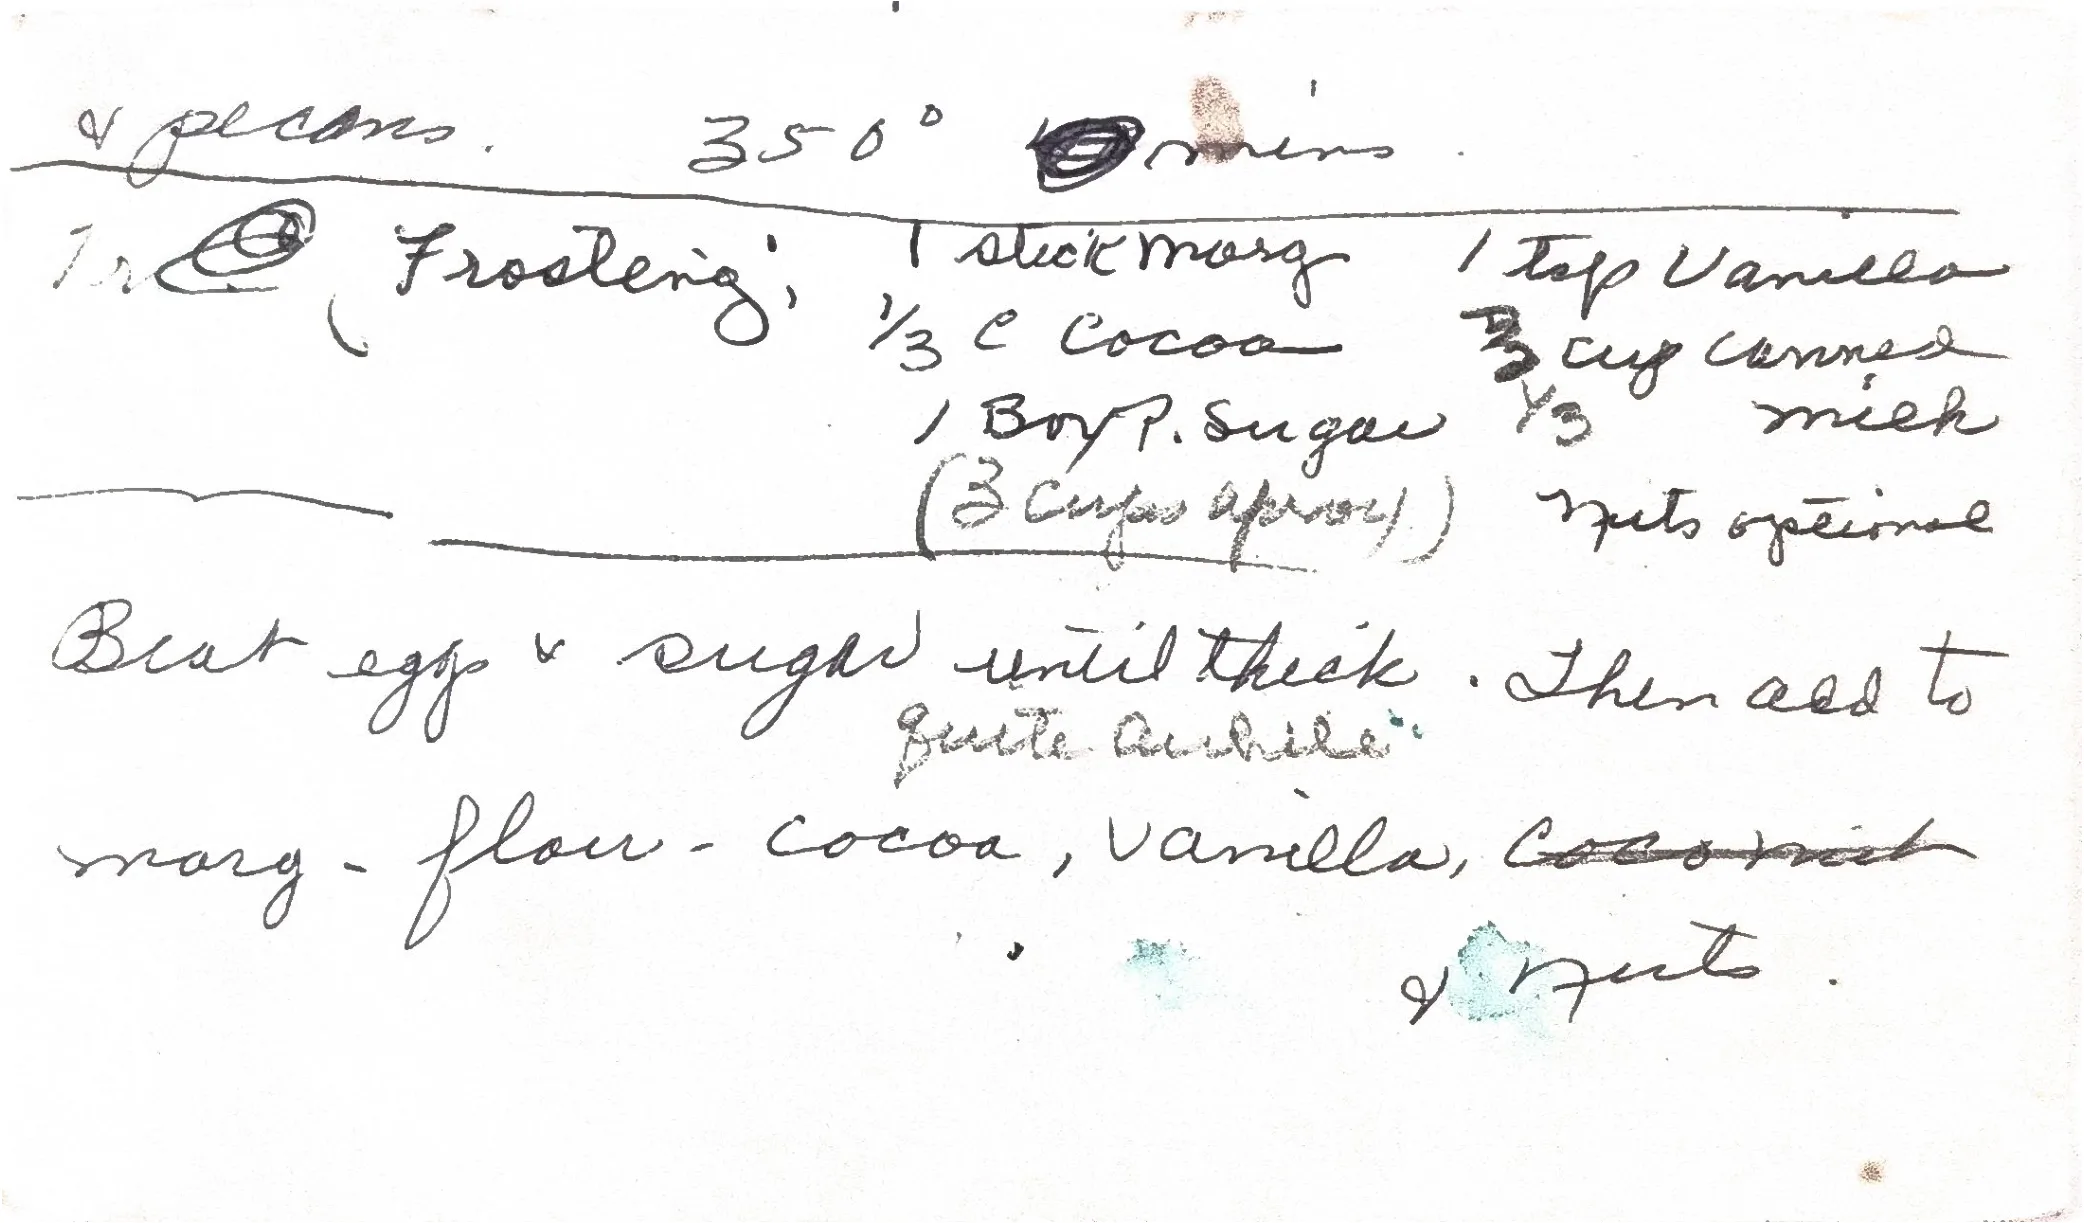 & pecans. 350° mins.
Frosting; 1 stick marg 1 tsp Vanilla
1/3 C Cocoa cup canned
1 Box P. Sugar 1/3 milk
(3 cups aprox) nuts optional
Beat eggs & sugar until thick. Then add to
quite awhile
marg - flour - cocoa, vanilla, coconut
& nuts.